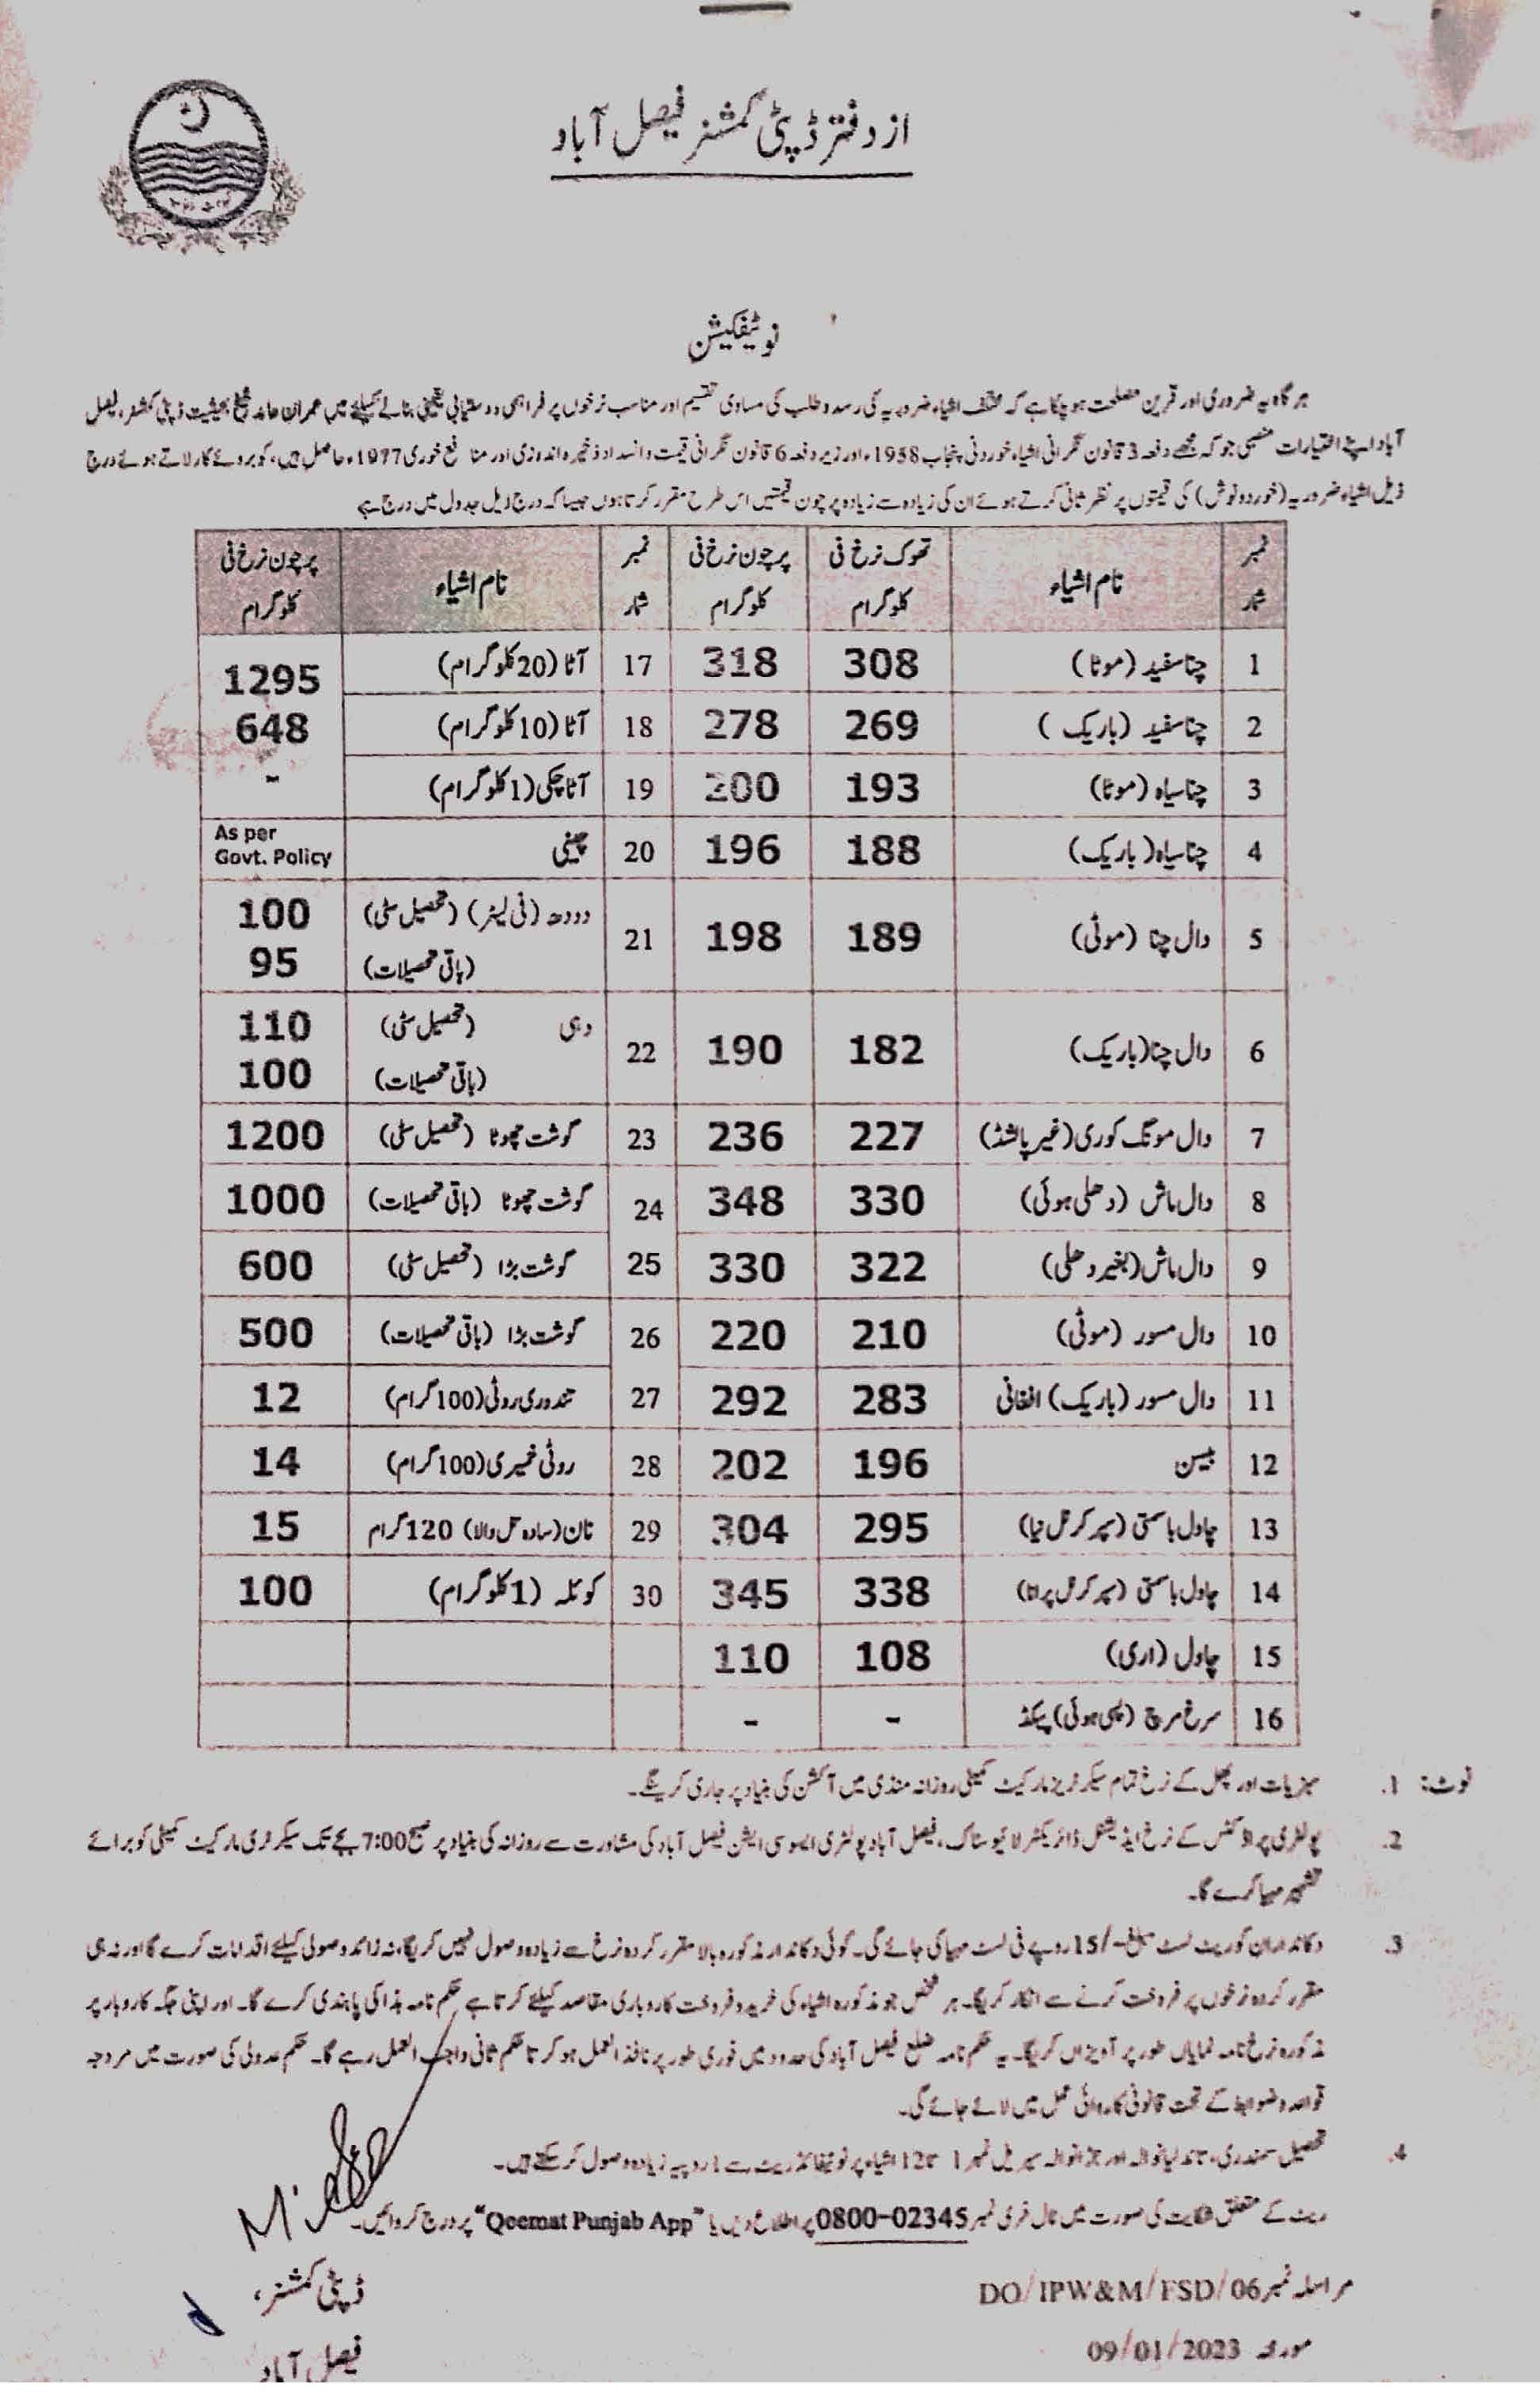 از دفتر ڈپٹی کمشنر فیصل آباد
نوٹیفکیشن
ہر گاہ یہ ضروری اور قرین مصلحت ہو چکا ہے کہ مختلف اشیاء ضروریہ کی رسد و طلب کی مساوی تقسیم اور مناسب نرخوں پر فراہمی و دستیابی یقینی بنانے کیلئے میں عمران حامد شیخ بحیثیت ڈپٹی کمشنر، فیصل
آباد اپنے اختیارات منصبی جو کہ مجھے دفعہ 3 قانون نگرانی اشیاء خوردنی پنجاب 1958ء اور زیر دفعہ 6 قانون نگرانی قیمت و انسداد ذخیرہ اندوزی اور منافع خوری 1977ء حاصل ہیں، کو بروئے کار لاتے ہوئے درج
ذیل اشیاء ضروریہ (خورد و نوش) کی قیمتوں پر نظر ثانی کرتے ہوئے ان کی زیادہ سے زیادہ پرچون قیمتیں اس طرح مقرر کرتا ہوں جیسا کہ درج ذیل جدول میں درج ہے
نمبر شمار نام اشیاء تھوک نرخ فی کلوگرام پرچون نرخ فی کلوگرام نمبر شمار نام اشیاء پرچون نرخ فی کلوگرام
1 چنا سفید (موٹا) 308 318 17 آٹا (20 کلوگرام) 1295
2 چنا سفید (باریک) 269 278 18 آٹا (10 کلوگرام) 648
3 چنا سیاہ (موٹا) 193 200 19 آٹا چکی (1 کلوگرام) -
4 چنا سیاہ (باریک) 188 196 20 چینی As per Govt. Policy
5 دال چنا (موٹی) 189 198 21 دودھ (فی لیٹر) (تحصیل سٹی) 100
(باقی تحصیلات) 95
6 دال چنا (باریک) 182 190 22 دہی (تحصیل سٹی) 110
(باقی تحصیلات) 100
7 دال مونگ کوری (غیر پالشڈ) 227 236 23 گوشت چھوٹا (تحصیل سٹی) 1200
8 دال ماش (دھلی ہوئی) 330 348 24 گوشت چھوٹا (باقی تحصیلات) 1000
9 دال ماش (بغیر دھلی) 322 330 25 گوشت بڑا (تحصیل سٹی) 600
10 دال مسور (موٹی) 210 220 26 گوشت بڑا (باقی تحصیلات) 500
11 دال مسور (باریک) افغانی 283 292 27 تندوری روٹی (100 گرام) 12
12 بیسن 196 202 28 روٹی خمیری (100 گرام) 14
13 چاول باسمتی (سپر کرنل نیا) 295 304 29 نان (سادہ تل والا) 120 گرام 15
14 چاول باسمتی (سپر کرنل پرانا) 338 345 30 کوئلہ (1 کلوگرام) 100
15 چاول (اری) 108 110
16 سرخ مرچ (پسی ہوئی) پیکڈ - -
نوٹ: 1. سبزیات اور پھل کے نرخ تمام سیکرٹریز مارکیٹ کمیٹی روزانہ منڈی میں آکشن کی بنیاد پر جاری کریں گے۔
2. پولٹری پراڈکٹس کے نرخ ایڈیشنل ڈائریکٹر لائیو سٹاک، فیصل آباد پولٹری ایسوسی ایشن فیصل آباد کی مشاورت سے روزانہ کی بنیاد پر صبح 7:00 بجے تک سیکرٹری مارکیٹ کمیٹی کو برائے
تشہیر مہیا کرے گا۔
3. دکانداران کو ریٹ لسٹ مبلغ -/15 روپے فی لسٹ مہیا کی جائے گی۔ کوئی دکاندار مذکورہ بالا مقرر کردہ نرخ سے زیادہ وصول نہیں کریگا، نہ زائد وصولی کیلئے اقدامات کرے گا اور نہ ہی
مقرر کردہ نرخوں پر فروخت کرنے سے انکار کریگا۔ ہر شخص جو مذکورہ اشیاء کی خرید و فروخت کاروباری مقاصد کیلئے کرتا ہے حکم نامہ ہذا کی پابندی کرے گا۔ اور اپنی جگہ کاروبار پر
مذکورہ نرخ نامہ نمایاں طور پر آویزاں کریگا۔ یہ حکم نامہ ضلع فیصل آباد کی حدود میں فوری طور پر نافذ العمل ہو کر تا حکم ثانی واجب العمل رہے گا۔ حکم عدولی کی صورت میں مروجہ
قواعد و ضوابط کے تحت قانونی کاروائی عمل میں لائے جائے گی۔
4. تحصیل سمندری، تاندلیانوالہ اور جڑانوالہ سیریل نمبر 1 تا 12 اشیاء پر نوٹیفائڈ ریٹ سے 1 روپیہ زیادہ وصول کر سکتے ہیں۔
ریٹ کے متعلق شکایت کی صورت میں ٹال فری نمبر 0800-02345 پر اطلاع دیں یا "Qeemat Punjab App" پر درج کروائیں۔
ڈپٹی کمشنر،
فیصل آباد
مراسلہ نمبر DO/IPW&M/FSD/06
مورخہ 09/01/2023